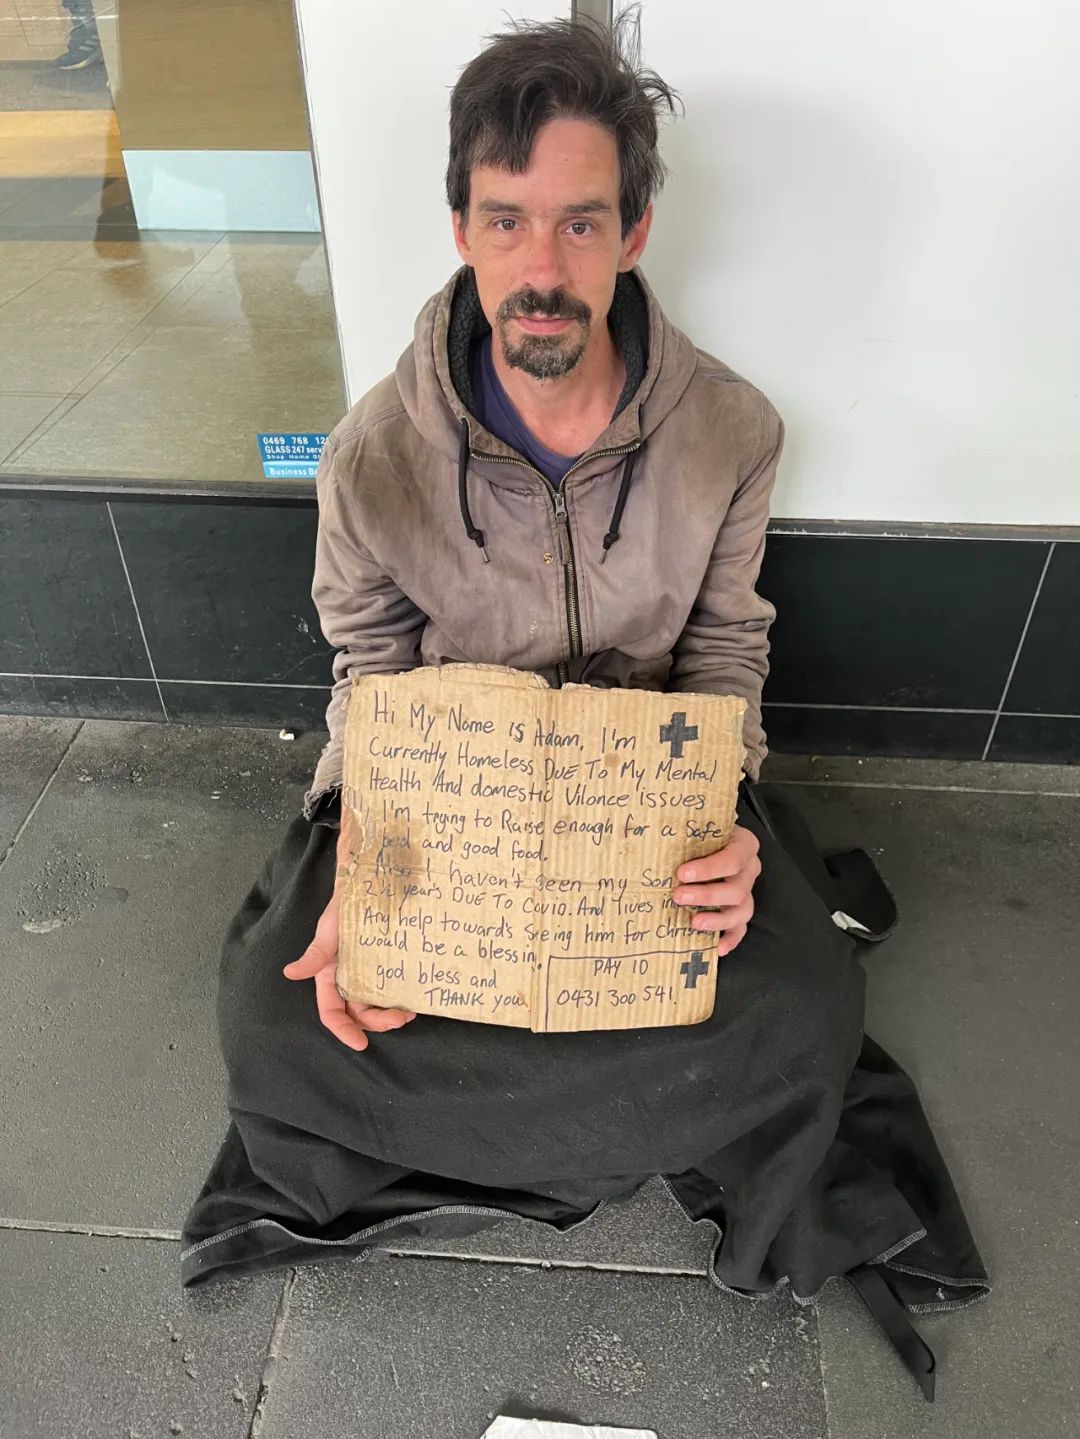 0469 768 12
GLASS 247 serv
Shop Home O
Business Be
Hi My Name is Adam, I'm
Currently Homeless DUE To My Mental
Health And domestic Vilonce issues
I'm trying to Raise enough for a Safe
bed and good food.
Also I haven't seen my Son
2½ years DUE To Covid. And lives in
Any help toward's Seeing him for Christ
would be a blessin.
god bless and
THANK you
PAY ID
0431 300 541.